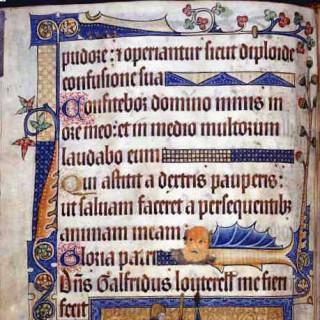 pudore: ⁊ operiantur sicut diploide
confusione sua
Confitebor domino nimis in
ore meo: et in medio multorum
laudabo eum
Qui astitit a dextris pauperis:
ut saluam faceret a persequentibȝ
animam meam
Gloria patri
Dñs Galfridus louterell me fieri
fecit